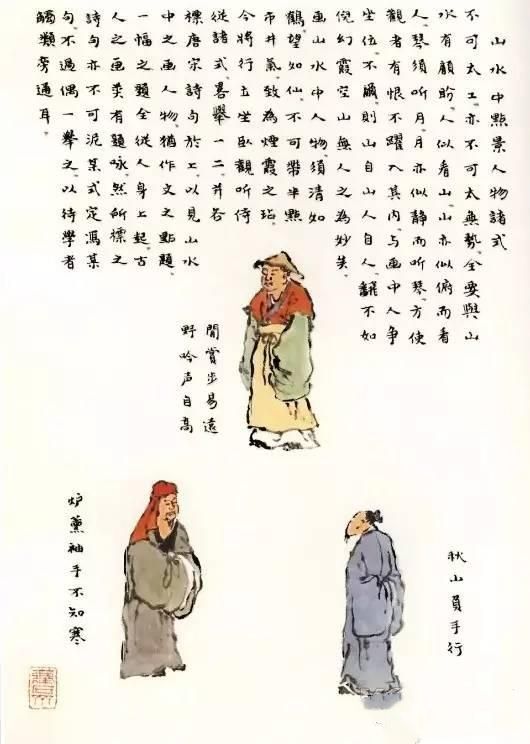 山水中點景人物諸式
不可太工亦不可太無勢全要與山
水有顧盼人似看山山亦似俯而看
人琴須听月月亦似静而听琴方使
觀者有恨不躍入其內与画中人争
坐位不爾則山自山人自人翻不如
倪幻霞空山無人之為妙矣
画山水中人物須清如
鶴望如仙不可帶半點
市井氣致為煙霞之玷
今將行立坐臥觀听侍
從諸式畧舉一二并各
標唐宋詩句於上以見山水
中之画人物猶作文之點題
一幅之題全從人身上起古
人之画类有題咏然所標之
詩句亦不可泥某式定馮某
句不過偶一舉之以待學者
觸類旁通耳
閒賞步易遠
野吟声自高
秋山負手行
炉薰袖手不知寒